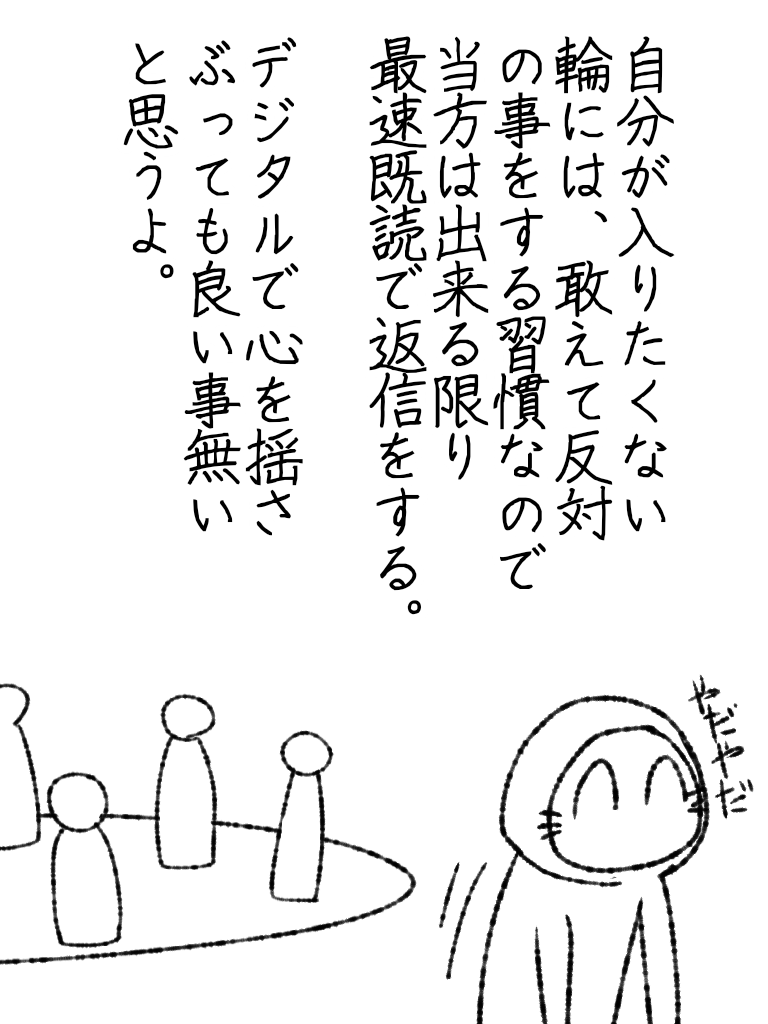 自分が入りたくない
輪には、敢えて反対
の事をする習慣なので
当方は出来る限り
最速既読で返信をする。
デジタルで心を揺さ
ぶっても良い事無い
と思うよ。
やだやだ